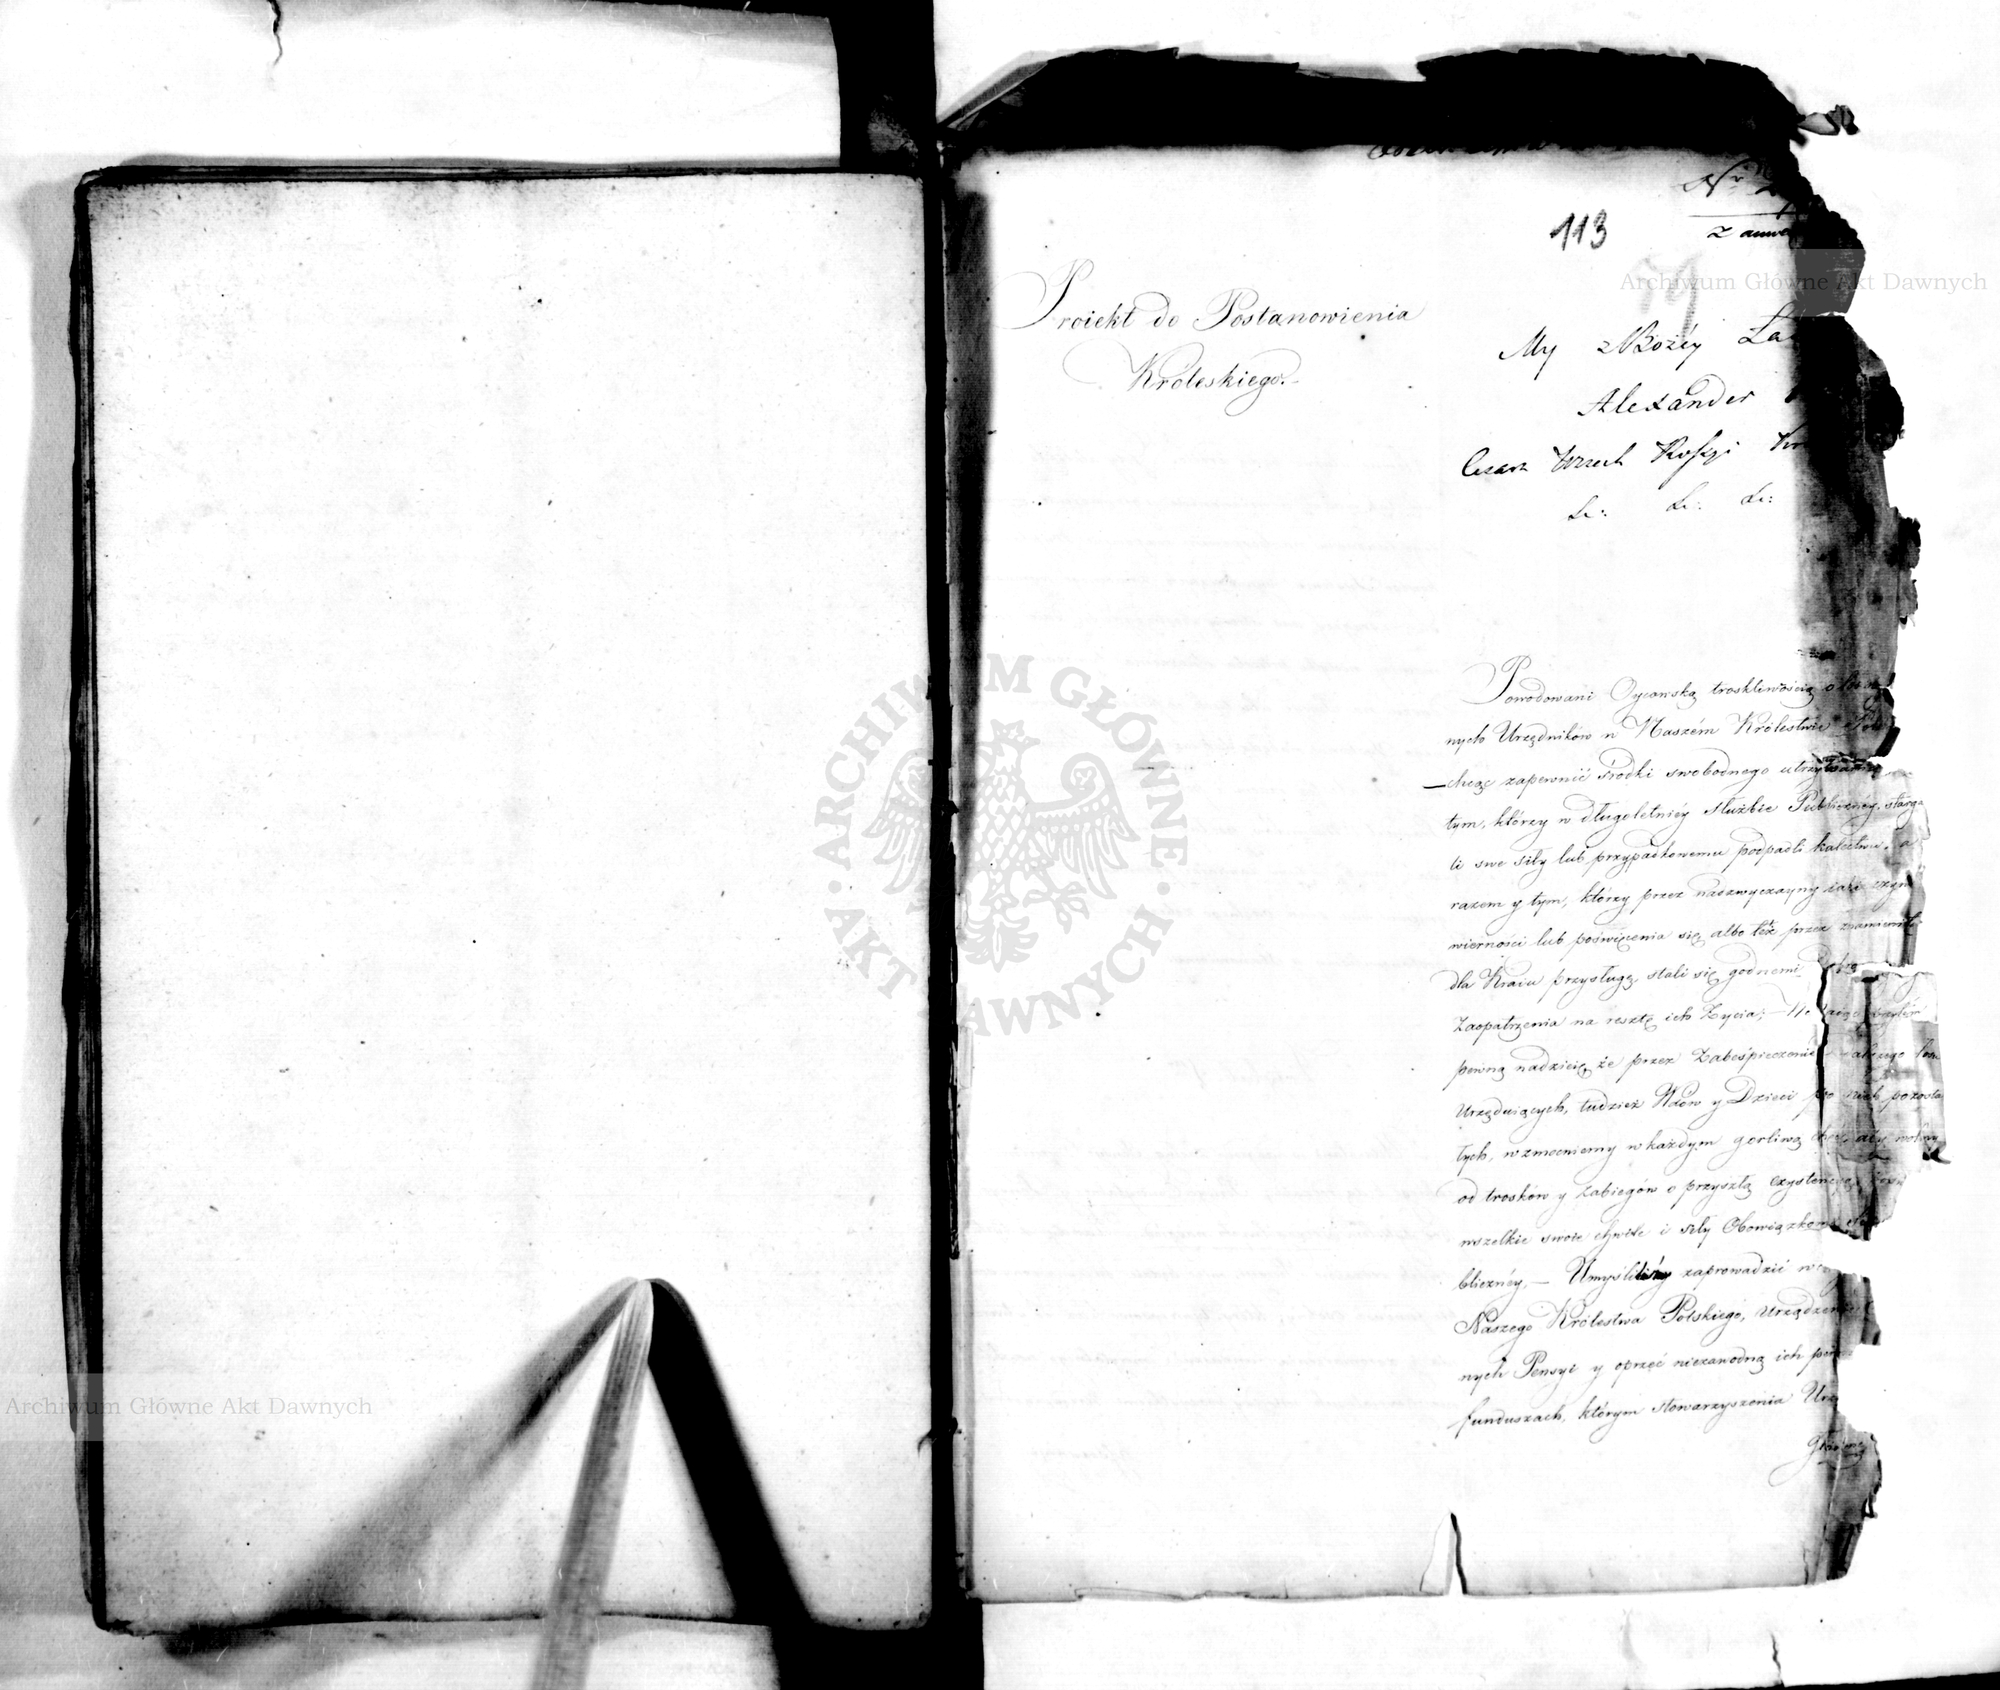 113
Proiekt do Postanowienia
Króleskiego.
My z Bożéy
Alexander
Cesarz Wszech Rossyi
&c: &c: &c:
Powodowani Oycowską troskliwością o
nych Urzędników w Naszém Królestwie
chcąc zapewnić srodki swobodnego utrzymania
tym, którzy w długoletniéy służbie Publicznéy, starga
li swe siły lub przypadkowemu podpadli kalectwu, a
razem y tym, którzy przez nadzwyczayny iaki czyn
wierności lub poświęcenia się albo też przez znamienite
dla Kraiu przysługi, stali się godnemi
Zaopatrzenia na resztę ich Życia; —
pewną nadzieię że przez Zabespieczenie
Urzęduiących, tudzież Wdów y Dzieci po nich pozosta
łych, wzmocniemy w każdym gorliwą chęć, aby wolny
od trosków y zabiegów o przyszłą exystencyą,
wszelkie swoie chwile i siły Obowiązkom
bliczney, — Umyśliliśmy zaprowadzić w
Naszego Królestwa Polskiego, Urządzenie
nych Pensyi y oprzéć niezawodną ich
funduszach, którym stowarzyszenia
Archiwum Główne Akt Dawnych
Archiwum Główne Akt Dawnych
ARCHIWUM GŁÓWNE AKT DAWNYCH